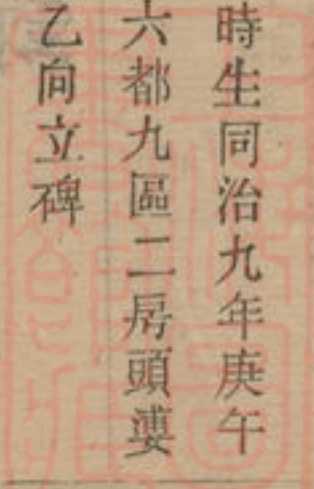 時生同治九年庚午
六都九區二房頭婁
乙向立碑